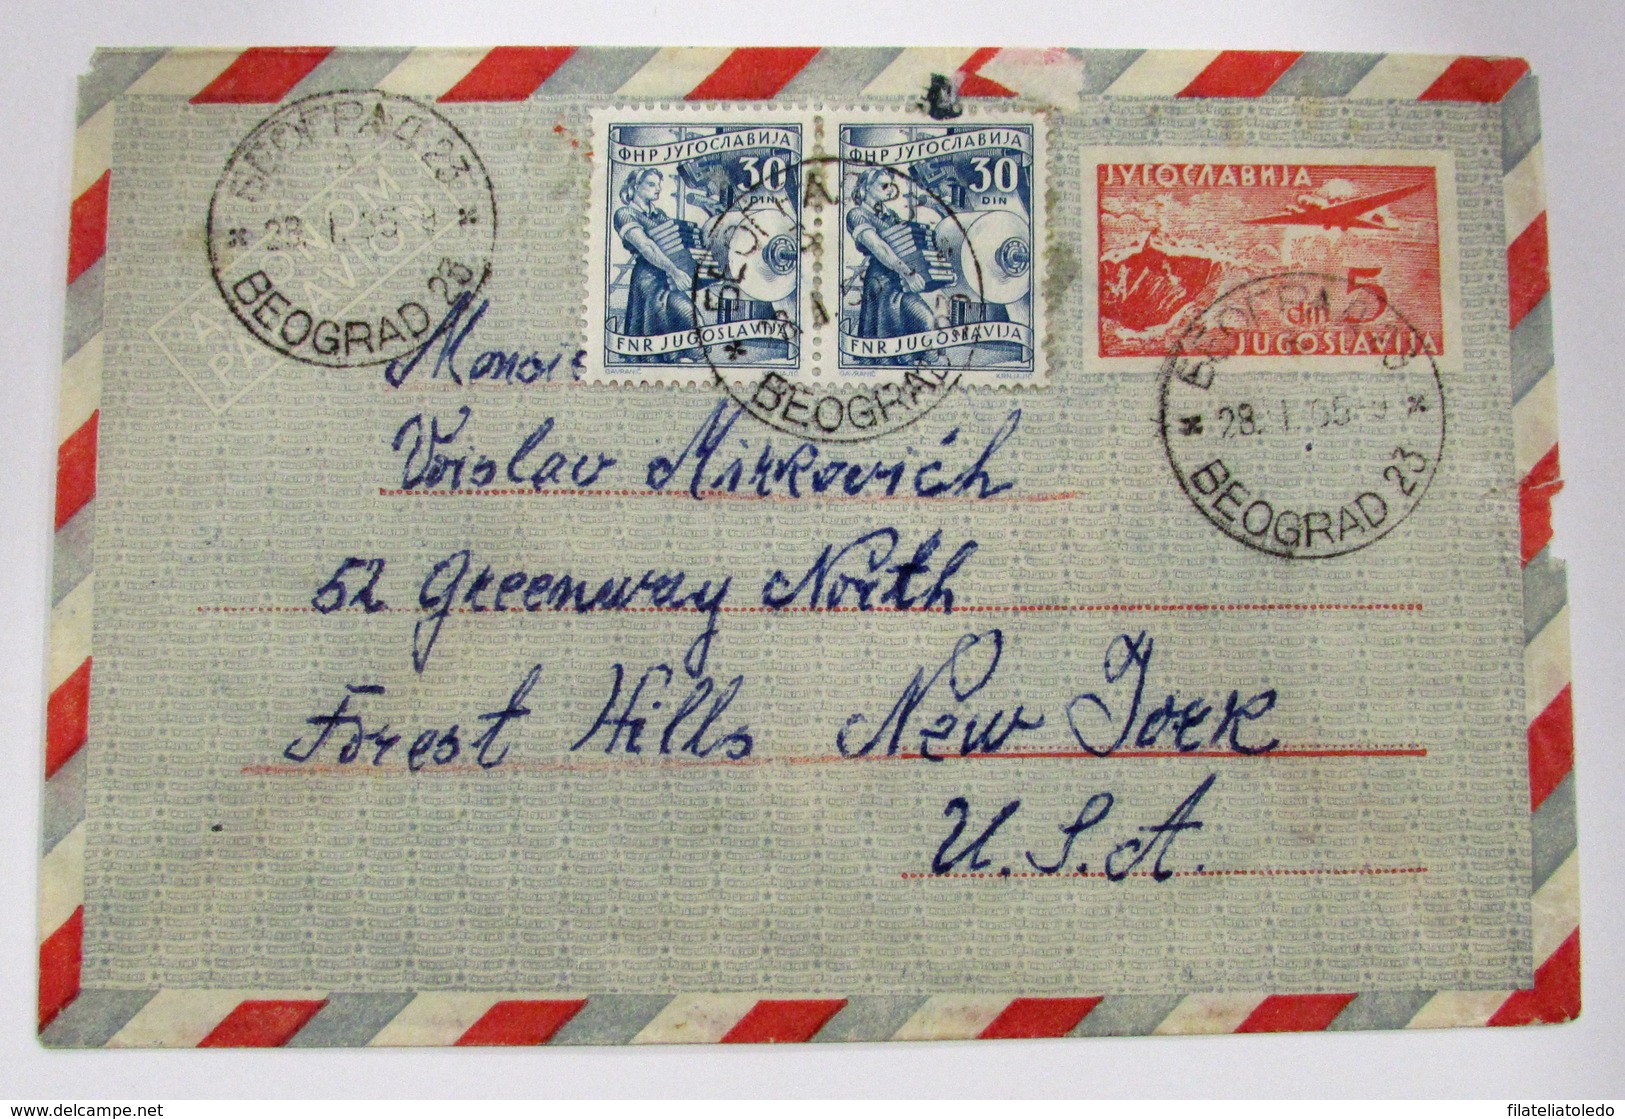 БЕОГРАД 23
28. I. 55-9
BEOGRAD 23
AVIONOM
PAR AVION
ФНР ЈУГОСЛАВИЈА
30
DIN
FNR JUGOSLAVIJA
ФНР ЈУГОСЛАВИЈА
30
DIN
FNR JUGOSLAVIJA
BEOGRAD
ЈУГОСЛАВИЈА
5
din
JUGOSLAVIJA
БЕОГРАД 23
28. I. 55-9
BEOGRAD 23
Voislav Mirkovich
52 Greenway North
Forest Hills New York
U.S.A.
www.delcampe.net
filateliatoledo